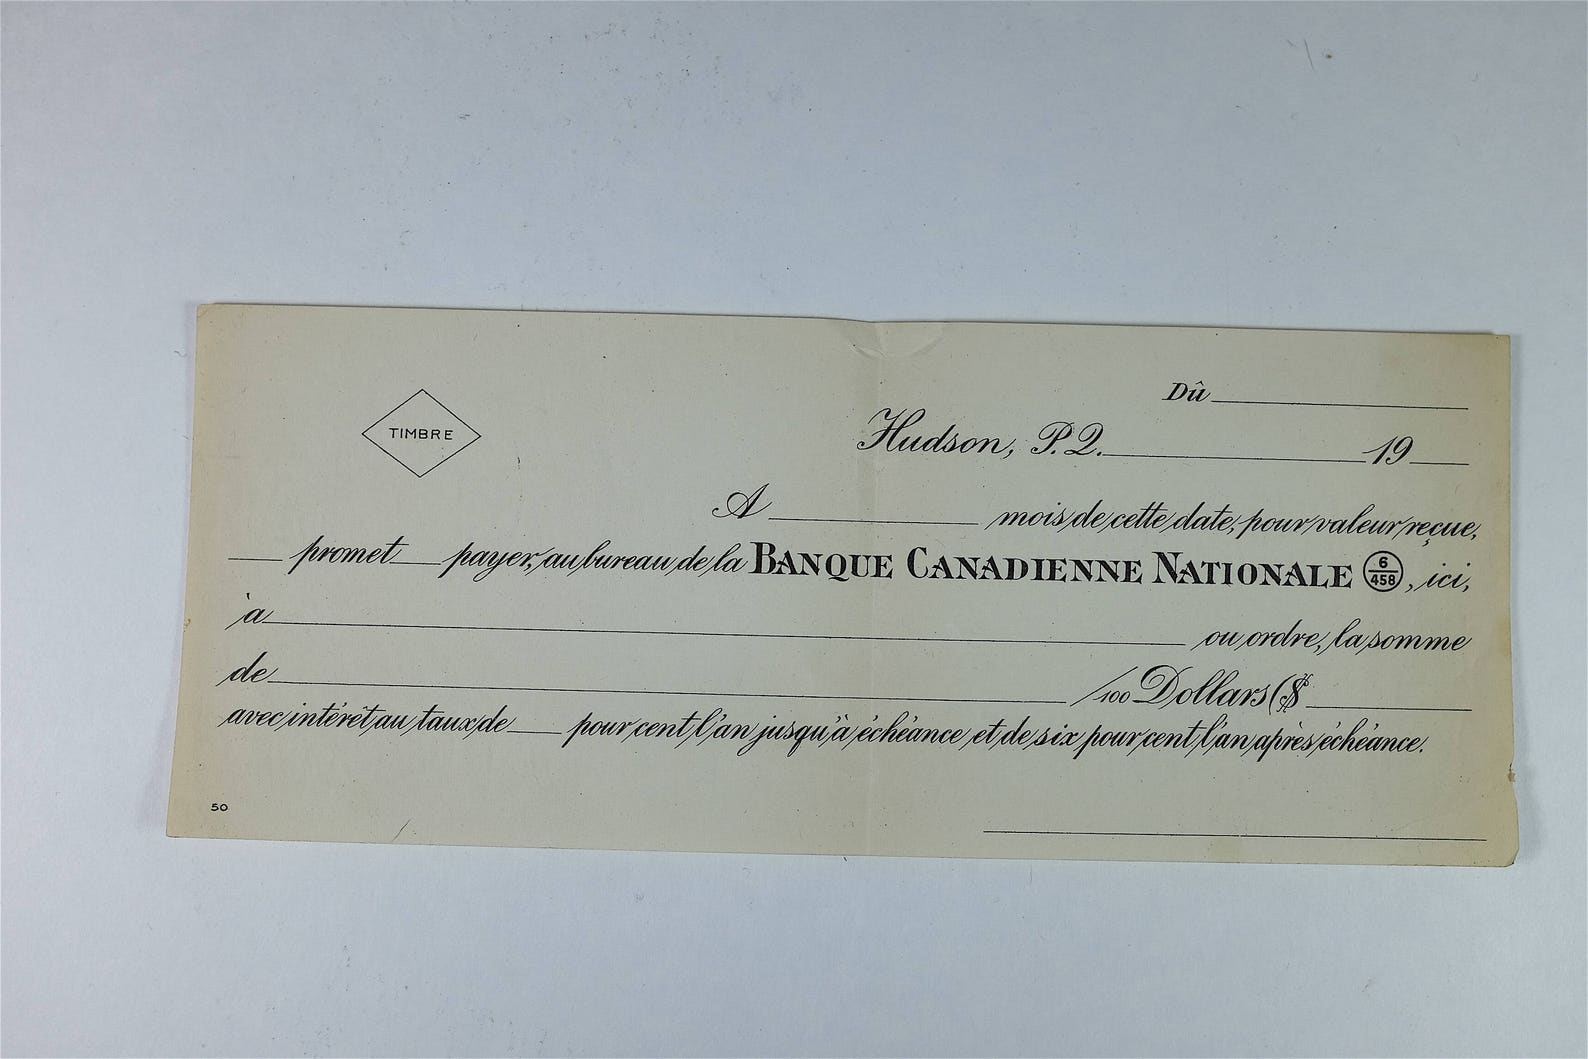 Dû
TIMBRE
Hudson, P. Q. 19
A mois de cette date, pour valeur reçue,
promet payer, au bureau de la BANQUE CANADIENNE NATIONALE 6/458, ici,
à ou ordre, la somme
de /100 Dollars ($
avec intérêt au taux de pour cent l'an jusqu'à échéance et de six pour cent l'an après échéance.
50